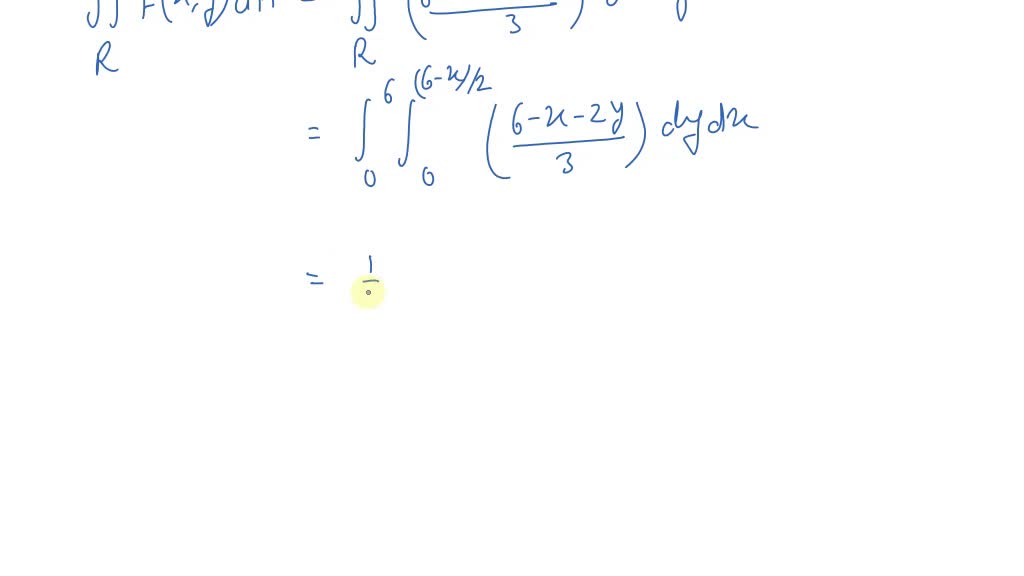 ∬ F(x,y)dA = ∬ ( /3)
R R
= ∫₀⁶ ∫₀^((6-x)/2) ((6-x-2y)/3) dy dx
= 1/